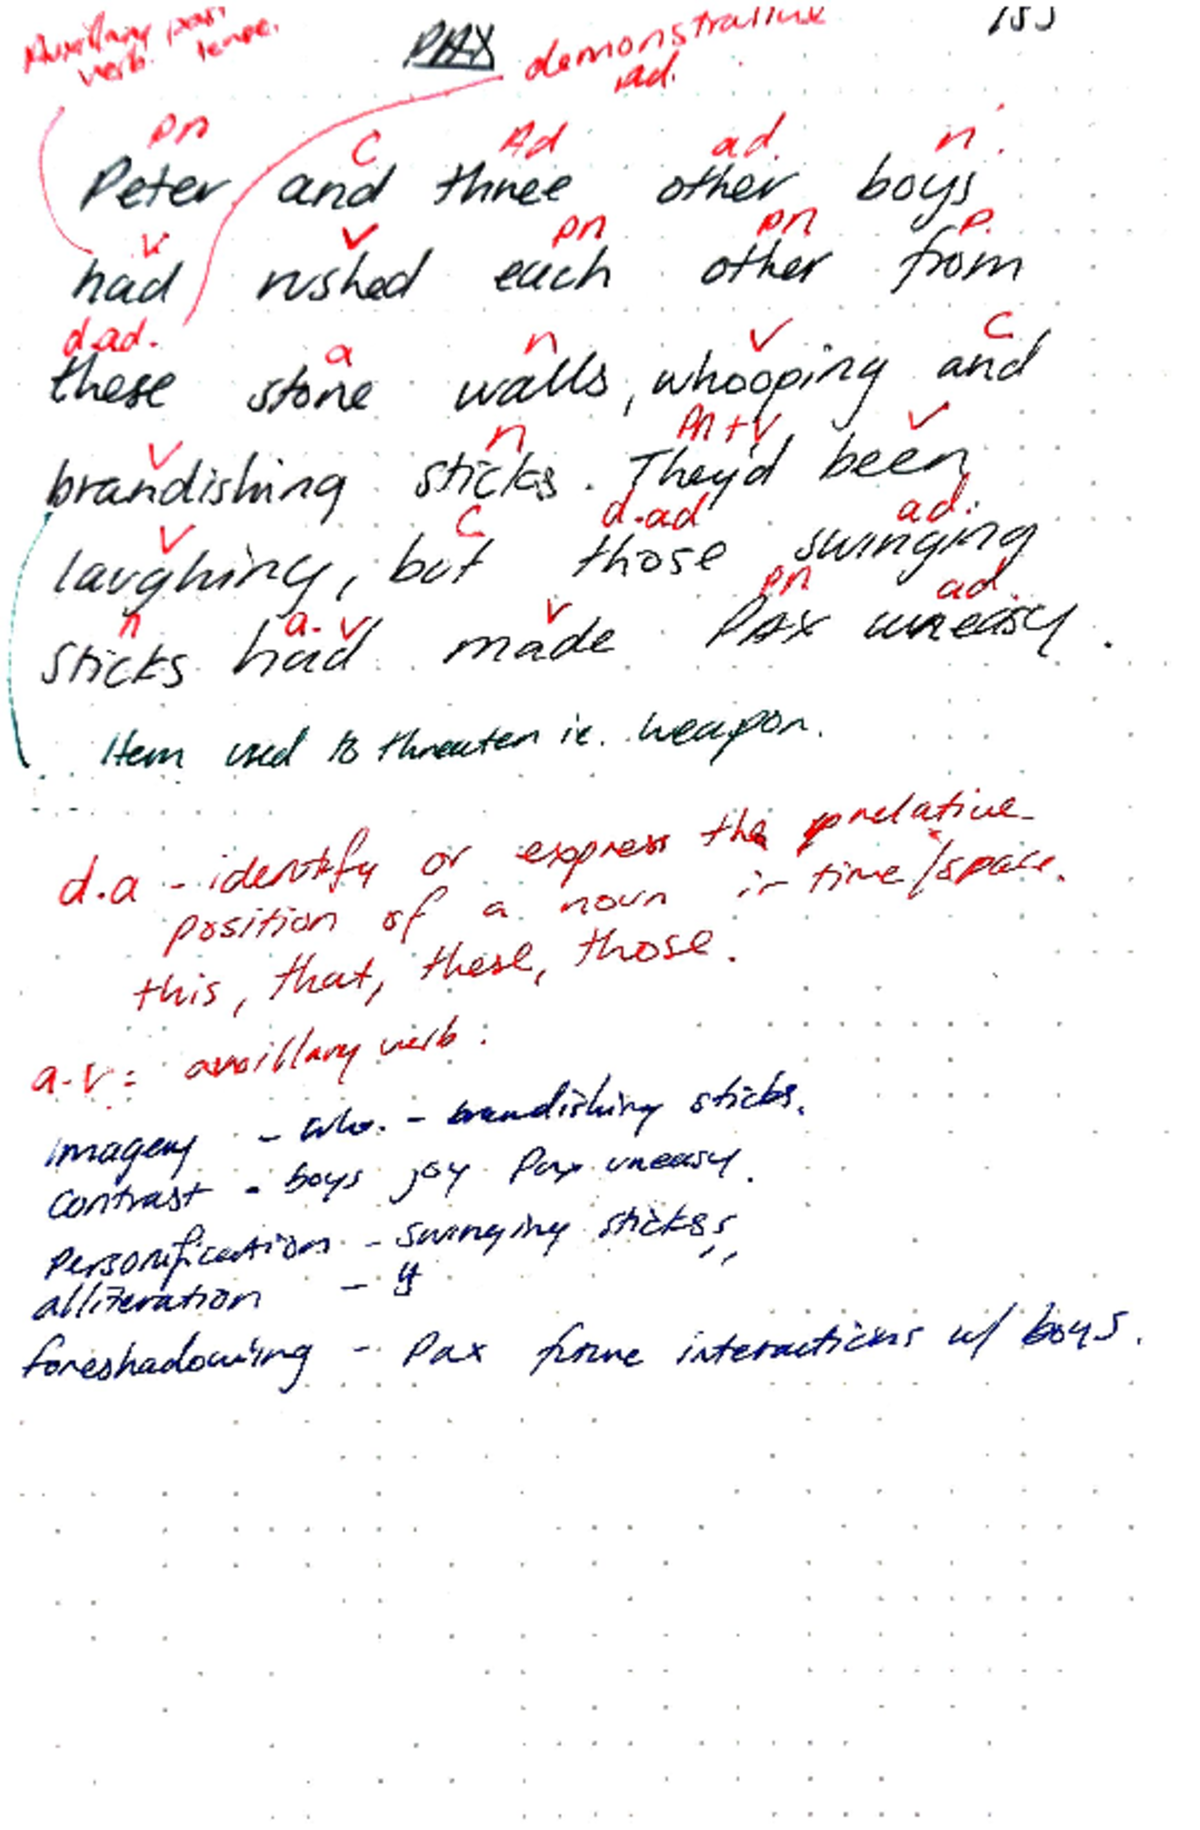 Auxillary past
verb. tense.
PAX
demonstrative
ad.
153
pn c Ad ad. n.
Peter and three other boys
v v pn pn p.
had rushed each other from
d.ad. a n v c
these stone walls, whooping and
v n pn+v v
brandishing sticks. They'd been
v c d.ad ad.
laughing, but those swinging
n a.v v pn ad.
sticks had made PAX uneasy.
Item used to threaten ie. weapon.
d.a - identify or express the relative
position of a noun in time/space.
this, that, these, those.
a.v = auxillary verb.
imagery - - brandishing sticks.
contrast - boys joy Pax uneasy.
personification - swinging sticks
alliteration -
foreshadowing - Pax interactions w/ boys.